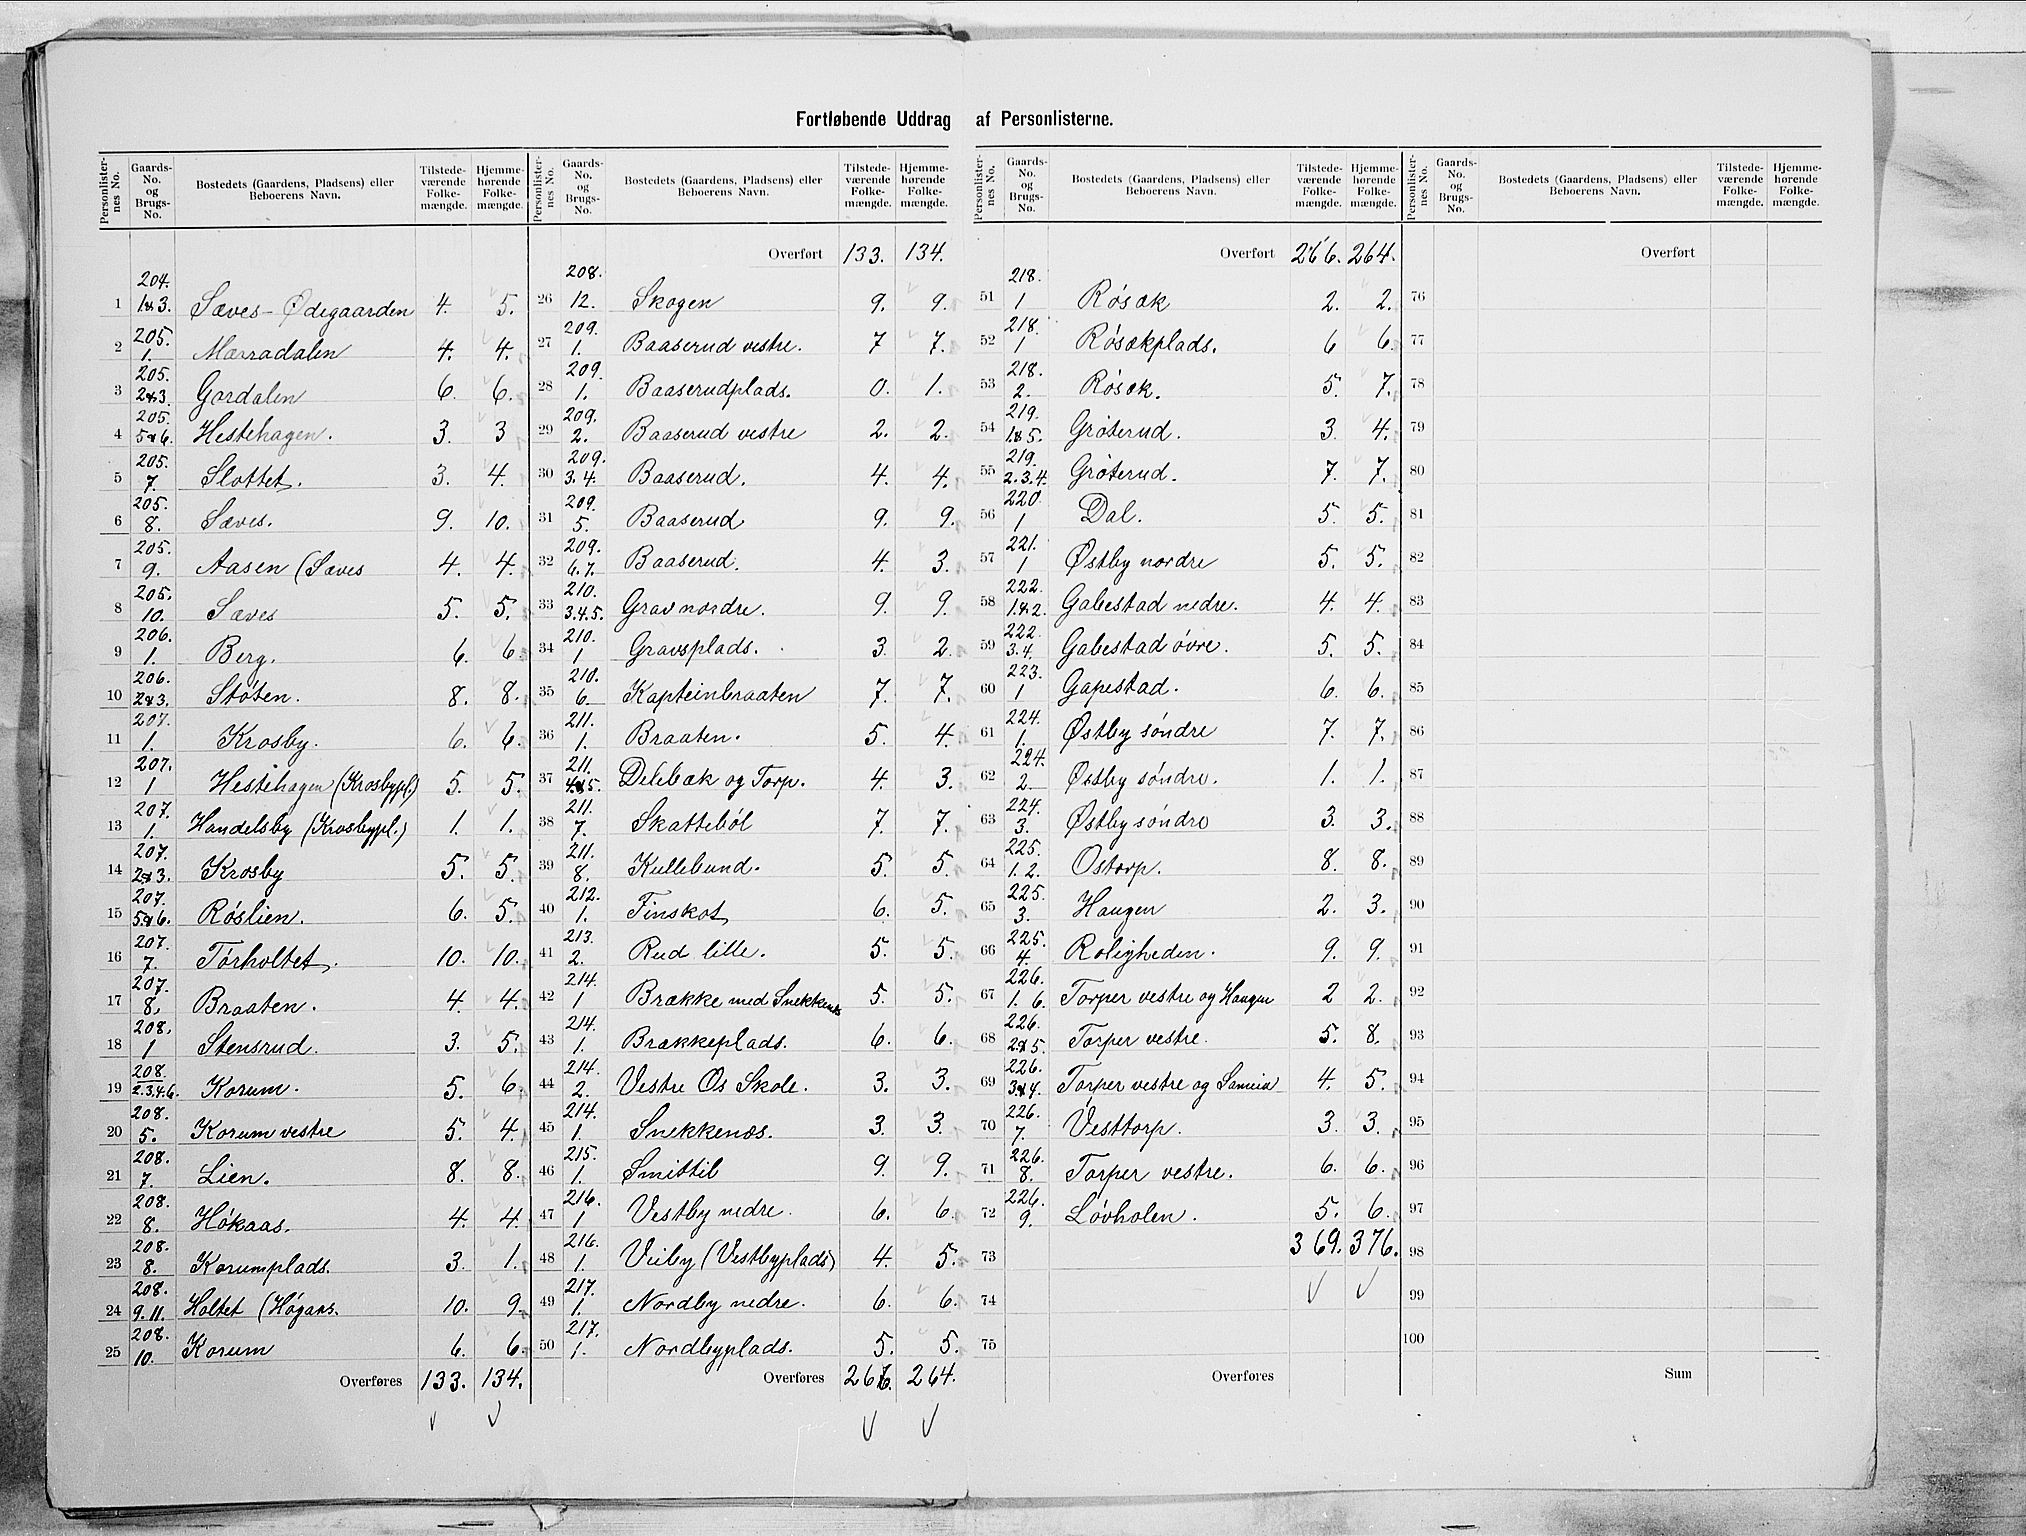 Fortløbende Uddrag af Personlisterne.
Personlister-nes No. | Gaards-No. og Brugs-No. | Bostedets (Gaardens, Pladsens) eller Beboerens Navn. | Tilstede-værende Folke-mængde. | Hjemme-hørende Folke-mængde.
1 204. 1&3. Sæves-Ødegaarden 4. 5.
2 205. 1. Marradalen 4. 4.
3 205. 2&3. Gordalen 6. 6.
4 205. 5&6. Hestehagen. 3. 3
5 205. 7. Slottet. 3. 4.
6 205. 8. Sæves. 9. 10.
7 205. 9. Aasen (Sæves 4. 4.
8 205. 10. Sæves 5. 5.
9 206. 1. Berg. 6. 6.
10 206. 2&3. Støten. 8. 8.
11 207. 1. Krosby. 6. 6.
12 207. 1 Hestehagen (Krosbypl.) 5. 5.
13 207. 1. Handelsby (Krosbypl.) 1. 1.
14 207. 2&3. Krosby 5. 5.
15 207. 5&6. Røslien. 6. 5.
16 207. 7. Tørholtet. 10. 10.
17 207. 8. Braaten. 4. 4.
18 208. 1 Stensrud. 3. 5.
19 208. 2.3.4.6. Korum. 5. 6.
20 208. 5. Korum vestre 5. 4.
21 208. 7. Lien. 8. 8.
22 208. 8. Høkaas. 4. 4.
23 208. 8. Korumplads. 3. 1.
24 208. 9.11. Holtet (Høgaas. 10. 9.
25 208. 10. Korum 6. 6.
Overføres 133. 134.
Personlister-nes No. | Gaards-No. og Brugs-No. | Bostedets (Gaardens, Pladsens) eller Beboerens Navn. | Tilstede-værende Folke-mængde. | Hjemme-hørende Folke-mængde.
Overført 133. 134.
26 208. 12. Skogen 9. 9.
27 209. 1. Baaserud vestre. 7 7.
28 209. 1. Baaserudplads. 0. 1.
29 209. 2. Baaserud vestre 2. 2.
30 209. 3.4. Baaserud. 4. 4.
31 209. 5. Baaserud 9. 9.
32 209. 6.7. Baaserud. 4. 3.
33 210. 3.4.5. Grav nordre. 9. 9.
34 210. 1 Gravsplads. 3. 2.
35 210. 6. Kapteinbraaten 7. 7.
36 211. 1. Braaten. 5. 4.
37 211. 4&5. Delebæk og Torp. 4. 3.
38 211. 7. Skattebøl 7. 7.
39 211. 8. Kullebund. 5. 5.
40 212. 1. Finskot 6. 5.
41 213. 2. Rud lille. 5. 5.
42 214. 1 Brække med Snekkenes 5. 5.
43 214. 1. Brækkeplads. 6. 6.
44 214. 2. Vestre Os Skole. 3. 3.
45 214. 1. Snekkenæs. 3. 3.
46 215. 1. Smittil 9. 9.
47 216. 1 Vestby nedre. 6. 6.
48 216. 1. Veiby (Vestbyplads) 4. 5.
49 217. 1. Nordby nedre. 6. 6.
50 217. 1. Nordbyplads. 5. 5.
Overføres 266. 264.
Personlister-nes No. | Gaards-No. og Brugs-No. | Bostedets (Gaardens, Pladsens) eller Beboerens Navn. | Tilstede-værende Folke-mængde. | Hjemme-hørende Folke-mængde.
Overført 266. 264.
51 218. 1 Røsæk 2. 2.
52 218. 1 Røsækplads. 6 6.
53 218. 2. Røsæk. 5. 7.
54 219. 1&5. Grøterud. 3. 4.
55 219. 2.3.4. Grøterud. 7. 7.
56 220. 1 Dal. 5. 5.
57 221. 1 Østby nordre 5. 5.
58 222. 1&2. Gabestad nedre. 4. 4.
59 222. 3.4. Gabestad øvre. 5. 5.
60 223. 1 Gapestad. 6. 6.
61 224. 1. Østby søndre 7. 7.
62 224. 2. Østby søndre. 1. 1.
63 224. 3. Østby søndre 3. 3.
64 225. 1.2. Ostorp. 8. 8.
65 225. 3. Haugen 2. 3.
66 225. 4. Roligheden. 9. 9.
67 226. 1. 6. Torper vestre og Haugen 2 2.
68 226. 2&5. Torper vestre. 5. 8.
69 226. 3&4. Torper vestre og 4. 5.
70 226. 7. Vesttorp. 3. 3.
71 226. 8. Torper vestre. 6. 6.
72 226. 9. Løvholen. 5. 6.
73 369. 376.
74
75
Overføres
Personlister-nes No. | Gaards-No. og Brugs-No. | Bostedets (Gaardens, Pladsens) eller Beboerens Navn. | Tilstede-værende Folke-mængde. | Hjemme-hørende Folke-mængde.
Overført
76
77
78
79
80
81
82
83
84
85
86
87
88
89
90
91
92
93
94
95
96
97
98
99
100
Sum